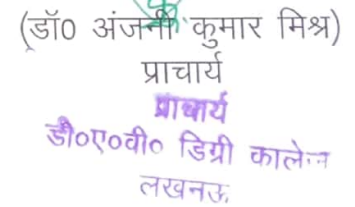 (डॉ0 अंजनी कुमार मिश्र)
प्राचार्य
प्राचार्य
डी०ए०वी० डिग्री कालेज
लखनऊ